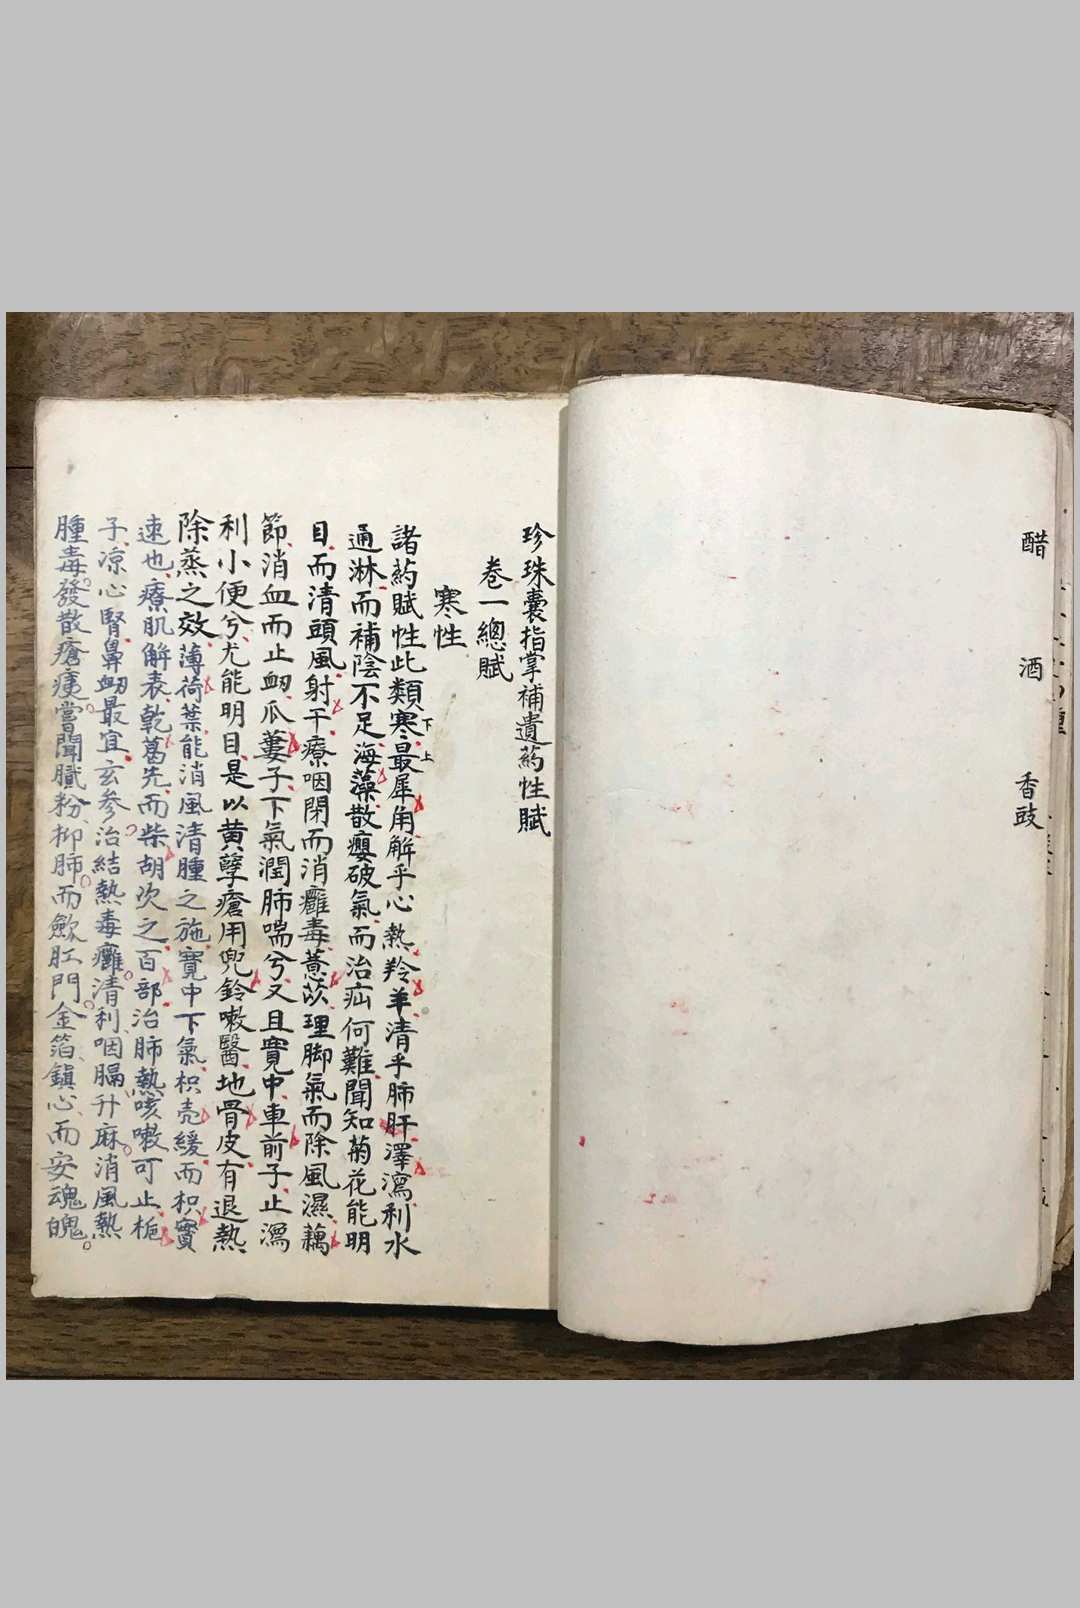 醋　酒　香豉
珍珠囊指掌補遺葯性賦
卷一總賦
寒性
諸葯賦性此類寒最下上犀角解乎心熱羚羊清乎肺肝澤瀉利水
通淋而補陰不足海藻散癭破氣而治疝何難聞知菊花能明
目而清頭風射干療咽閉而消癰毒薏苡理脚氣而除風濕藕
節消血而止衂瓜蔞子下氣潤肺喘兮又且寬中車前子止瀉
利小便兮尤能明目是以黄孽瘡用兜鈴嗽醫地骨皮有退熱
除蒸之效薄荷葉能消風清腫之施寬中下氣枳壳緩而枳實
速也療肌解表乾葛先而柴胡次之百部治肺熱咳嗽可止栀
子凉心腎鼻衂最宜玄參治結熱毒癰清利咽膈升麻消風熱
腫毒發散瘡痍嘗聞膩粉抑肺而歛肛門金箔鎮心而安魂魄